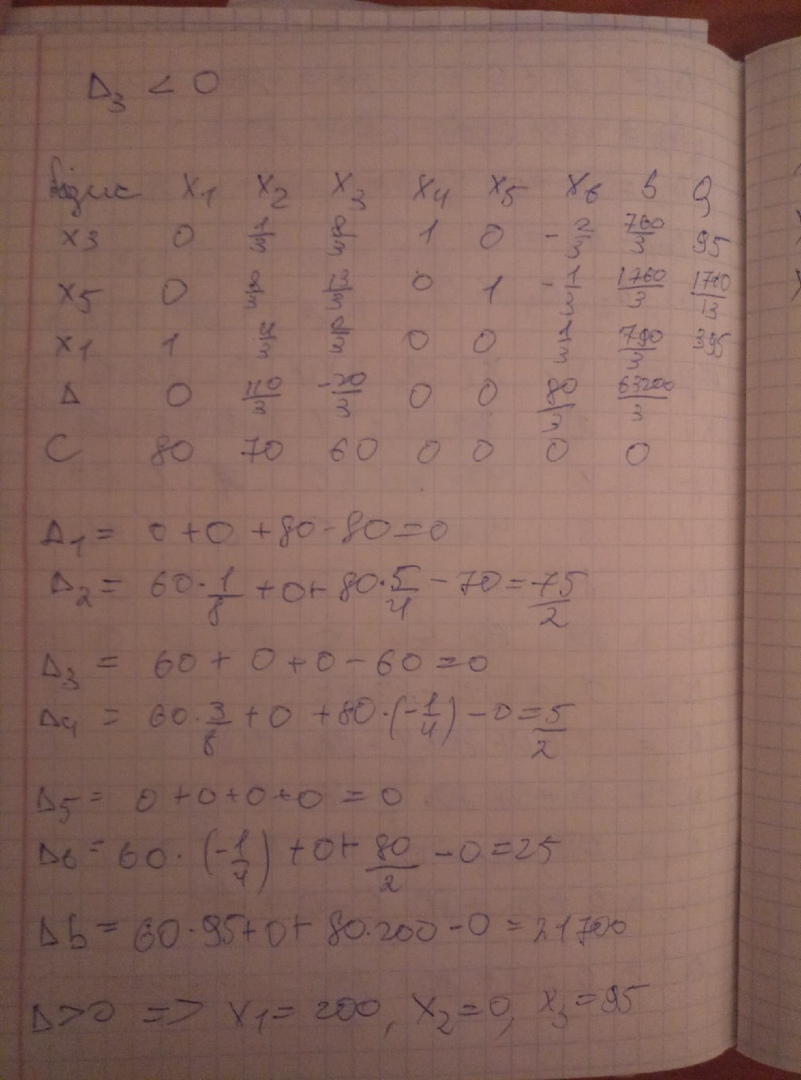 Δ₃ < 0
Базис x₁ x₂ x₃ x₄ x₅ x₆ b Q
x₃ 0 1/3 8/3 1 0 -2/3 760/3 95
x₅ 0 13/3 0 1 -1/3 1760/3 1760/13
x₁ 1 2/3 0 0 790/3 395
Δ 0 110/3 -20/3 0 0 80/3 63200/3
C 80 70 60 0 0 0 0
Δ₁ = 0 + 0 + 80 - 80 = 0
Δ₂ = 60·1/8 + 0 + 80·5/4 - 70 = 75/2
Δ₃ = 60 + 0 + 0 - 60 = 0
Δ₄ = 60·3/8 + 0 + 80·(-1/4) - 0 = 5/2
Δ₅ = 0 + 0 + 0 + 0 = 0
Δ₆ = 60·(-1/4) + 0 + 80/2 - 0 = 25
Δb = 60·95 + 0 + 80·200 - 0 = 21700
Δ > 0 => x₁ = 200, x₂ = 0, x₃ = 95